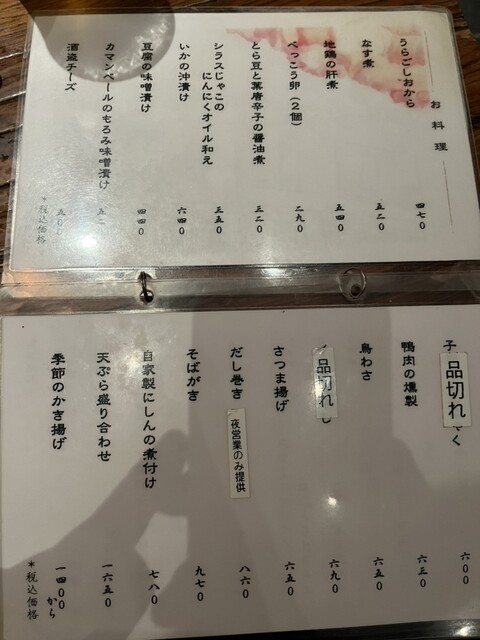 お料理
うらごしおから 四七0
なす煮 五二0
地鶏の肝煮 五四0
べっこう卵(2個) 二九0
とら豆と葉唐辛子の醤油煮 三二0
シラスじゃこの
にんにくオイル和え 三五0
いかの沖漬け 六四0
豆腐の味噌漬け 四四0
カマンベールのもろみ味噌漬け 五二
酒盗チーズ 五00
*税込価格
子 品切れ く 六00
鴨肉の燻製 六三0
鳥わさ 六五0
品切れ 六九0
さつま揚げ 六五0
だし巻き 夜営業のみ提供 八六0
そばがき 九七0
自家製にしんの煮付け 七八0
天ぷら盛り合わせ 一六五0
季節のかき揚げ 一四00から
*税込価格